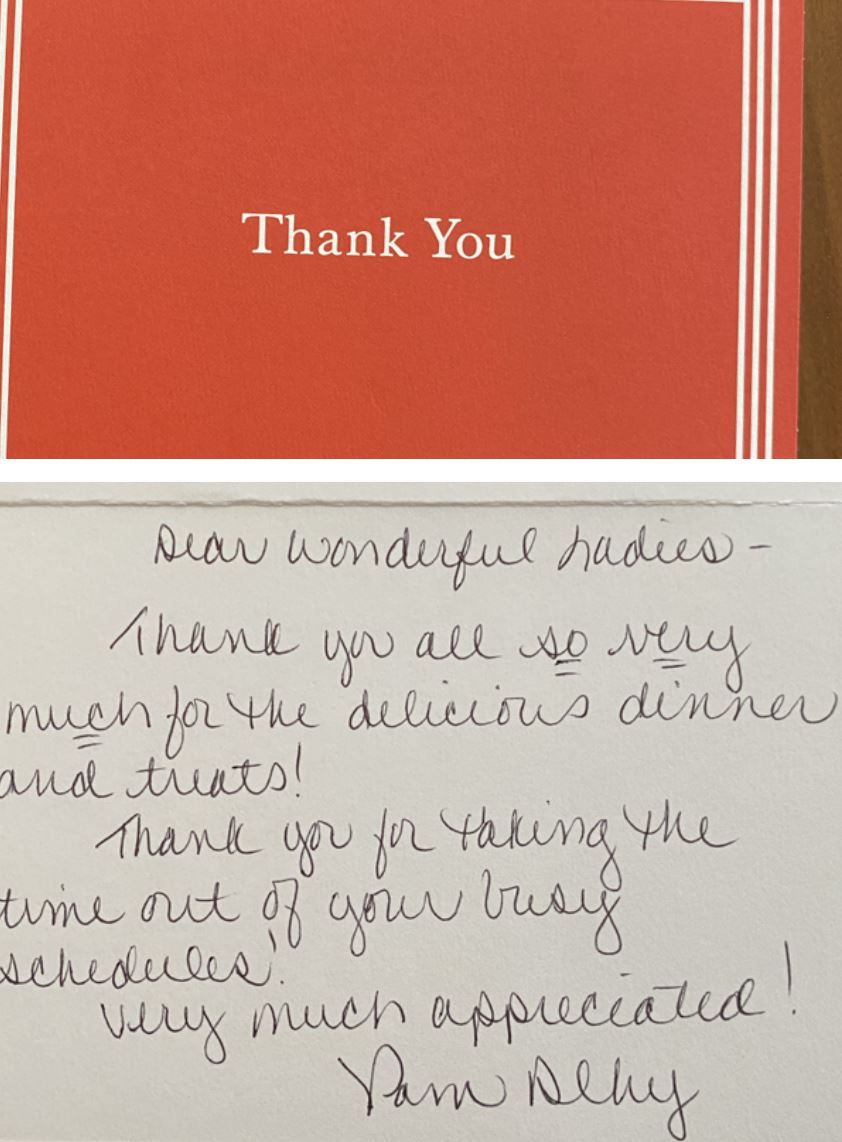 Thank You
Dear Wonderful Ladies -
Thank you all so very
much for the delicious dinner
and treats!
Thank you for taking the
time out of your busy
schedules!
Very much appreciated!
Pam